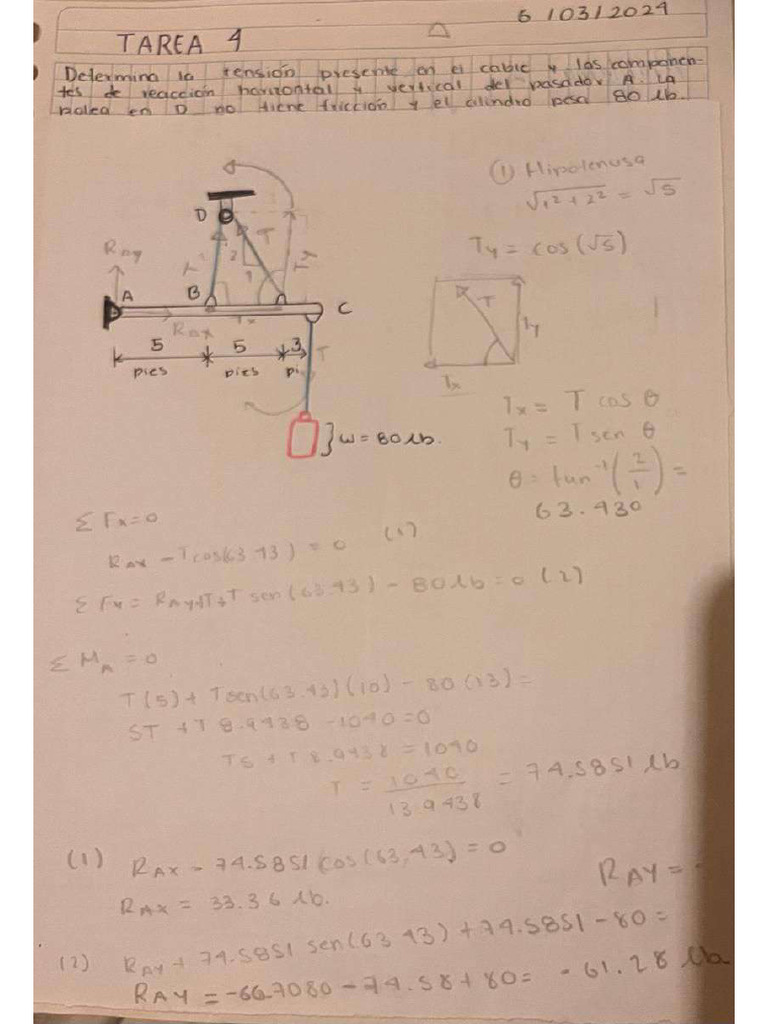 6 / 03 / 2024
TAREA 4
Determina la tensión presente en el cable y las componen-
tes de reacción horizontal y vertical del pasador A. La
polea en D no tiene fricción y el cilindro pesa 80 lb.
① Hipotenusa
√1² + 2² = √5
Ty = cos (√5)
D
T
T
2
1
Ty
RAy
A
B
C
RAx
Tx
5
pies
5
pies
3
pi
T
} w = 80 lb.
T
Ty
Tx
Tx = T cos θ
Ty = T sen θ
θ = tan⁻¹ (2/1) =
63.430
Σ Fx = 0
RAX - T cos(63.43) = 0 (1)
Σ Fy = RAY + T + T sen(63.43) - 80 lb = 0 (2)
Σ MA = 0
T(5) + T sen(63.43)(10) - 80(13) =
5T + T 8.9438 - 1040 = 0
T5 + T 8.9438 = 1040
T = 1040 / 13.9438 = 74.5851 lb
(1) RAX - 74.5851 cos(63.43) = 0
RAX = 33.36 lb.
RAY = -
(2) RAY + 74.5851 sen(63.43) + 74.5851 - 80 =
RAY = -66.7080 - 74.58 + 80 = -61.28 lb